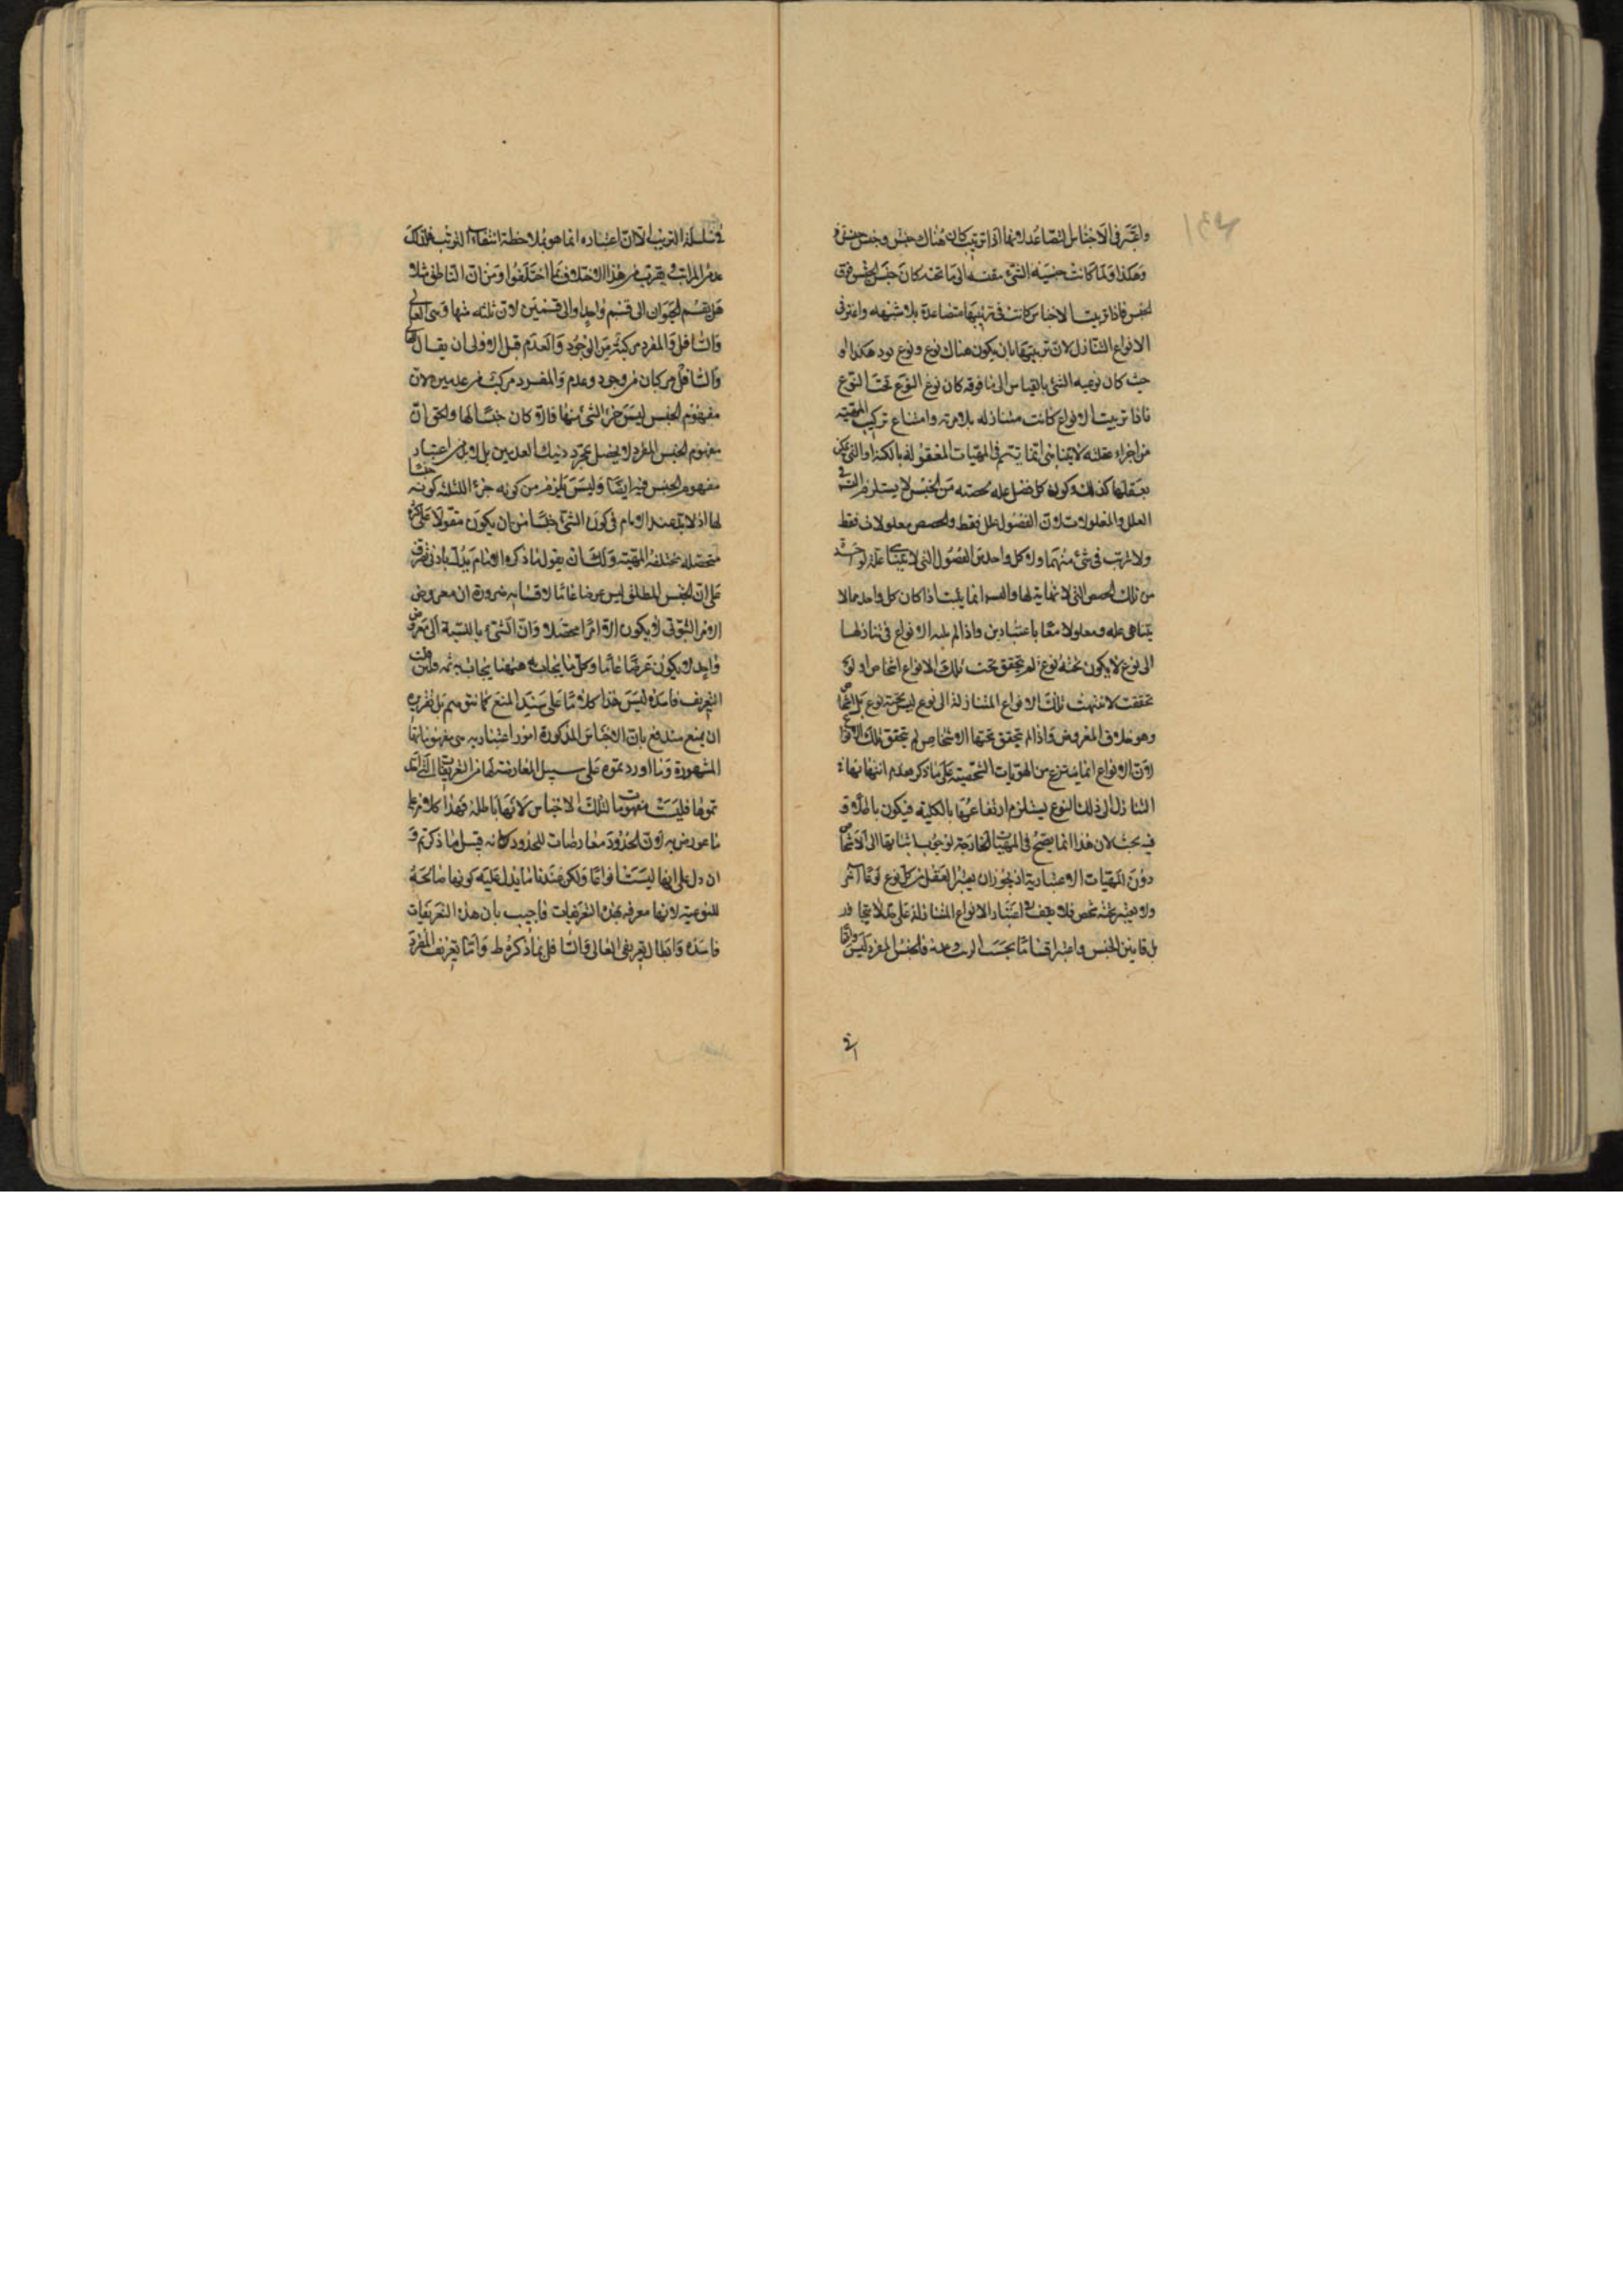 واعتبر فى الاجناس التصاعد لانها اذا ترتبت كان هناك جنس وجنس جنس
وهكذا ولما كانت جنسية الشئ مقيسة الى ما تحته كان جنس الجنس فوق
الجنس فاذا ترتبت الاجناس كانت فى ترتبها متصاعدة بلا شبهة واعتبر فى
الانواع التنازل لان ترتبها بان يكون هناك نوع ونوع نوع وهكذا و
حيث كان نوعية الشئ بالقياس الى ما فوقه كان نوع النوع تحت النوع
فاذا ترتبت الانواع كانت متنازلة بلا مرية وامتناع تركب المهية
من اجزاء عقلية لا يتناهى انما يتم فى المهيات المعقولة بالكنه او التى يمكن
تعقلها كذلك وكون كل فصل علة لحصته من الجنس لا يستلزم الترتب فى
العلل والمعلولات لان الفصول علل فقط والحصص معلولات فقط
ولا ترتب فى شئ منهما ولا كل واحد من الفصول التى لا يتناهى علة لواحدة
من تلك الحصص التى لا نهاية لها وانما يثبت اذا كان كل واحد مما لا
يتناهى علة ومعلولا معا باعتبارين واذا لم ينته الانواع فى تنازلها
الى نوع لا يكون تحته نوع لم يتحقق تحت تلك الانواع اشخاص اذ لو
تحققت لانتهت تلك الانواع المتنازلة الى نوع ليس تحته نوع بل اشخاص
وهو خلاف المفروض واذا لم تتحقق تحتها الاشخاص لم يتحقق تلك الانواع
لان الانواع انما ينتزع من الهويات الشخصية على ما ذكر فعدم انتهائها فى
التنازل الى ذلك النوع يستلزم ارتفاعها بالكلية فيكون باطلا و
فيه بحث لان هذا انما يصح فى المهيات الخارجة لوجوب انتهائها الى الاشخاص
دون المهيات الاعتبارية اذ يجوز ان يعتبر العقل من كل نوع نوعا آخر
ولا يعتبر تحته شخص فلا يقف اعتبار الانواع المتنازلة على حد لا يتجاوز
بل قايس الجنس واعتبر اقسامه بحسب الترتب وعدمه فالجنس المفرد ليس واقعا
فى سلسلة الترتيب الا ان اعتباره انما هو بملاحظة انتفاء الترتب فلذلك
عد من المراتب ويقرب من هذا الاختلاف ما اختلفوا فى ان الناطق مثلا
هل يقسم الحيوان الى قسم واحد او الى قسمين لان ثلثة منها وهى العالى
والسافل والمفرد مركبة من الوجود والعدم قيل الاولى ان يقال العالى
والسافل مركبان من وجود وعدم والمفرد مركب من عدمين لان
مفهوم الجنس ليس جزءا لشئ منها والا كان جنسا لها والحق ان
مفهوم الجنس المفرد لا يحصل بمجرد ذينك العدمين بل لا بد من اعتبار
مفهوم الجنس فيه ايضا وليس يلزم من كونه جزءا للثلثة كونه جنسا
لها اذ لا بد عند الامام فى كون الشئ جنسا من ان يكون مقولا على كثرة
متحصلة مختلفة المهية ولك ان تقول ما ذكره الامام يدل بادنى تصرف
على ان الجنس المطلق ليس عرضا عاما لاقسامه ضرورة ان معروض
الامر الثبوتى لا يكون الا امرا محصلا وان الشئ بالنسبة الى معروض
واحد لا يكون عرضا عاما وكل ما يجاب به ههنا يجاب به ثمه ولئن قلت
التعريف فاسد وليس هذا كلاما على سند المنع كما نتوهم بل تقريره
ان يمنع مندفع بان الاجناس المذكورة امور اعتبارية هى مفهوماتها
المشهورة وما اورد تموه على سبيل المعارضة لها من التعريفات التى
تموها فليست مفهومات لتلك الاجناس لانها باطلة فهذا كلام على
ما عورض به لان الحدود معارضات للحدود كانه قيل ما ذكرتم و
ان دل على انها ليست انواعا ولكن عندنا ما يدل عليه كونها صالحة
للنوعية لانها معرفة بهذه التعريفات فاجيب بان هذه التعريفات
فاسدة وابطال تعريفى العالى والسافل بما ذكره ط واما تعريف المفرد